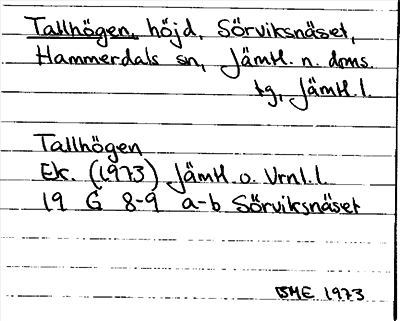 Tallhögen, höjd, Sörviksnäset,
Hammerdals sn, Jämtl. n. doms.
tg, Jämtl. l.
Tallhögen
Ek. (1973) Jämtl. o. Vrnl. l.
19 G 8-9 a-b Sörviksnäset
BME 1973